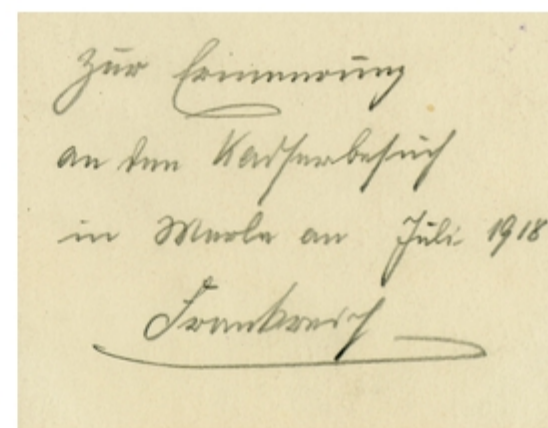 Zur Erinnerung
an den Kaiserbesuch
in Marle an Juli 1918
Frankreich